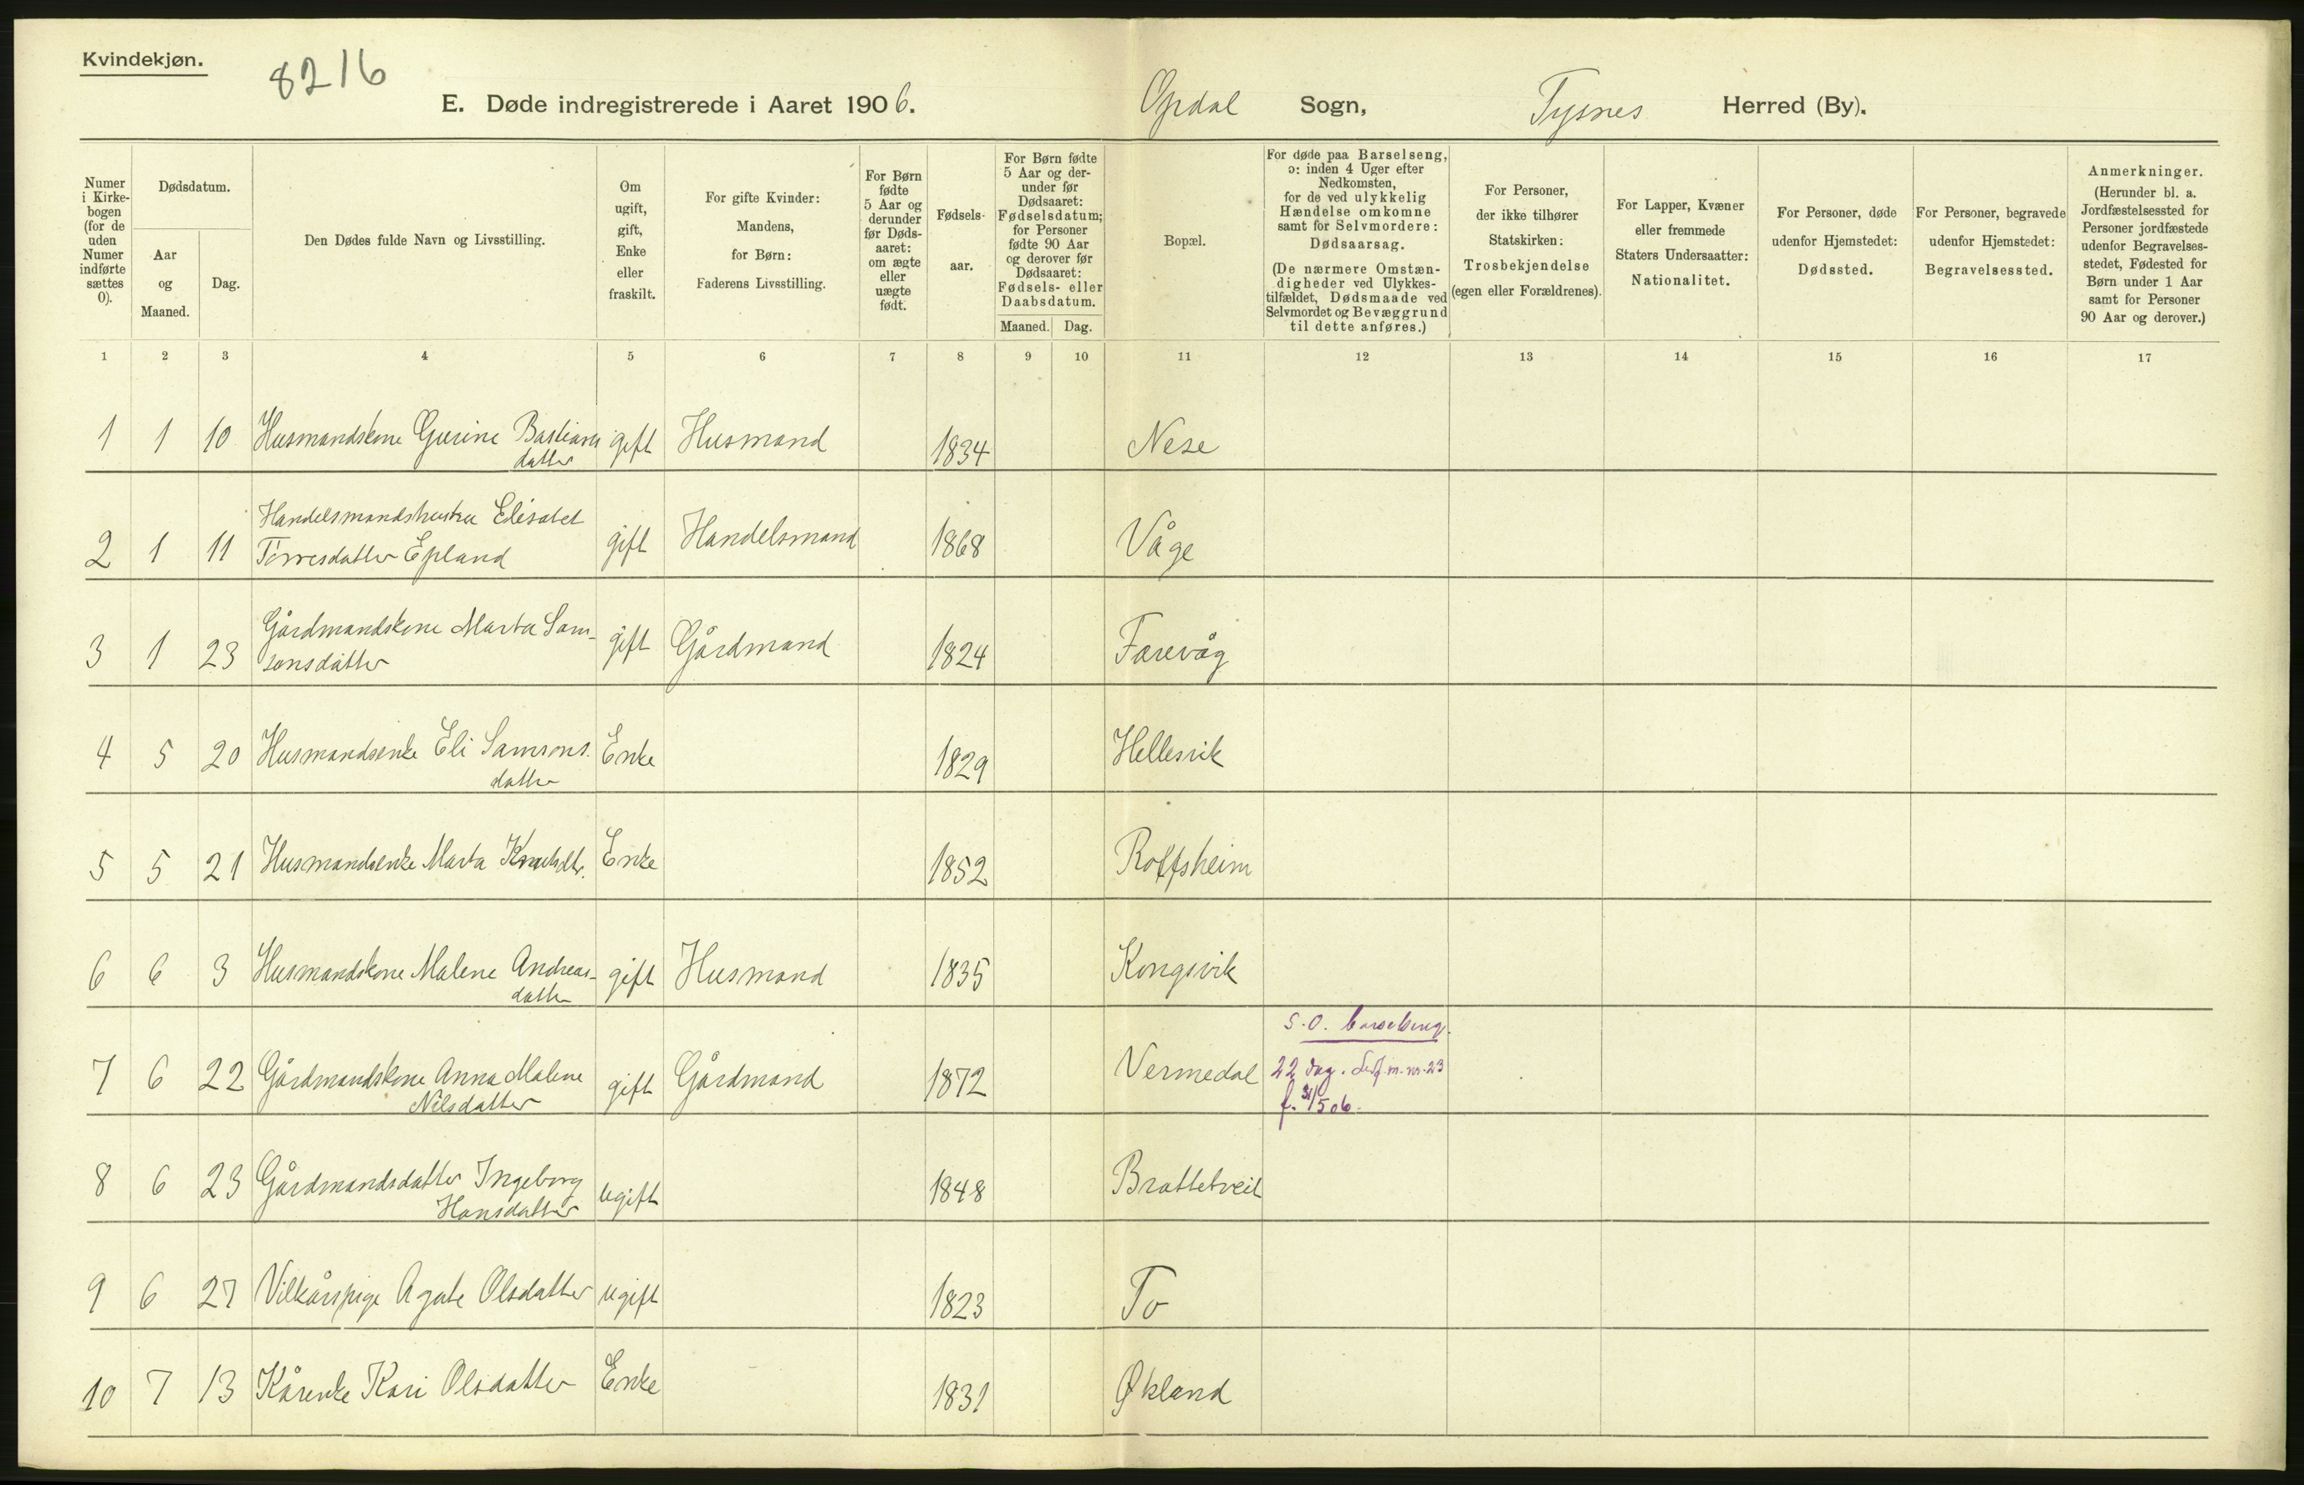 Kvindekjøn.
8216
E. Døde indregistrerede i Aaret 1906. Opdal Sogn, Tysnes Herred (By).
Numer i Kirkebogen (for de uden Numer indførte sættes 0).
Dødsdatum.
Aar og Maaned.
Dag.
Den Dødes fulde Navn og Livsstilling.
Om ugift, gift, Enke eller fraskilt.
For gifte Kvinder: Mandens, for Børn: Faderens Livsstilling.
For Børn fødte 5 Aar og derunder før Dødsaaret: om ægte eller uægte født.
Fødselsaar.
For Børn fødte 5 Aar og derunder før Dødsaaret: Fødselsdatum; for Personer fødte 90 Aar og derover før Dødsaaret: Fødsels- eller Daabsdatum.
Maaned. Dag.
Bopæl.
For døde paa Barselseng, ɔ: inden 4 Uger efter Nedkomsten, for de ved ulykkelig Hændelse omkomne samt for Selvmordere: Dødsaarsag.
(De nærmere Omstændigheder ved Ulykkestilfældet, Dødsmaade ved Selvmordet og Bevæggrund til dette anføres.)
For Personer, der ikke tilhører Statskirken: Trosbekjendelse (egen eller Forældrenes).
For Lapper, Kvæner eller fremmede Staters Undersaatter: Nationalitet.
For Personer, døde udenfor Hjemstedet: Dødssted.
For Personer, begravede udenfor Hjemstedet: Begravelsessted.
Anmerkninger. (Herunder bl. a. Jordfæstelsessted for Personer jordfæstede udenfor Begravelsesstedet, Fødested for Børn under 1 Aar samt for Personer 90 Aar og derover.)
1 2 3 4 5 6 7 8 9 10 11 12 13 14 15 16 17
1 1 10 Husmandskone Gurine Bastians gift Husmand 1834 Nese
datter
Handelsmandshustru Elisabet
2 1 11 Tørresdatter Epland gift Handelsmand 1868 Våge
Gårdmandskone Marta Sam-
3 1 23 sonsdatter gift Gårdmand 1824 Farevåg
4 5 20 Husmandsenke Eli Samsons. Enke 1829 Hellesvik
datter
5 5 21 Husmandsenke Marta Knutsdtr. Enke 1852 Roffsheim
6 6 3 Husmandskone Malene Andreas- gift Husmand 1835 Kongsvik
datter
s.o. barselseng.
7 6 22 Gårdmandskone Anna Malene gift Gårdmand 1872 Vermedal 22 dag. m. nr. 23
Nilsdatter f. 31/5 06.
8 6 23 Gårdmandsdatter Ingeborg ugift 1848 Brattetveit
Hansdatter
9 6 27 Vilkårspige Agate Olsdatter ugift 1823 To
10 7 13 Kårenke Kari Olsdatter Enke 1831 Økland